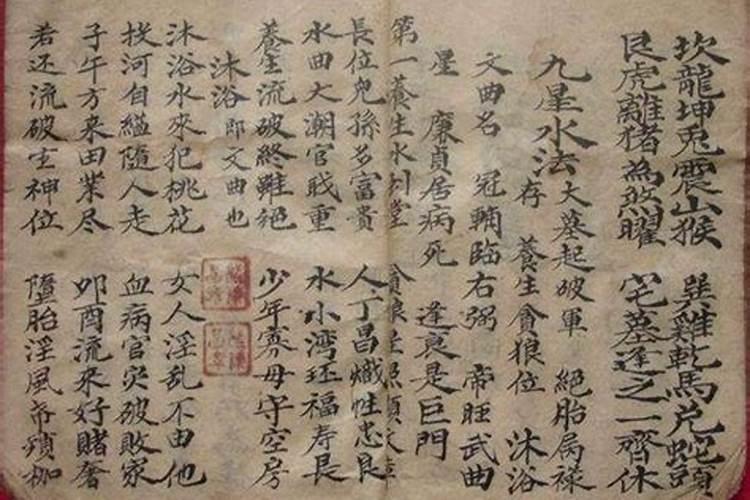 坎龍坤兎震山猴 巽雞乾馬兌蛇頭
艮虎離猪為煞曜 宅墓逢之一齊休
九星水法 大墓起破軍 絕胎局祿
存 養生貪狼位 沐浴
文曲名 冠輔臨右弼 帝旺武曲
星 廉貞居病死 逢衰是巨門
第一養生水到堂 貪狼星照顕文章
長位児孫多富貴 人丁昌熾性忠良
水曲大潮官戝重 水小湾环福寿長
養生流破終雖絕 少年寡母守空房
沐浴即文曲也
沐浴水來犯桃花 女人淫乱不由他
投河自縊隨人走 血病官灾破敗家
子午方來田業尽 卯酉流來好賭奢
若还流破生神位 墮胎淫風帶枷